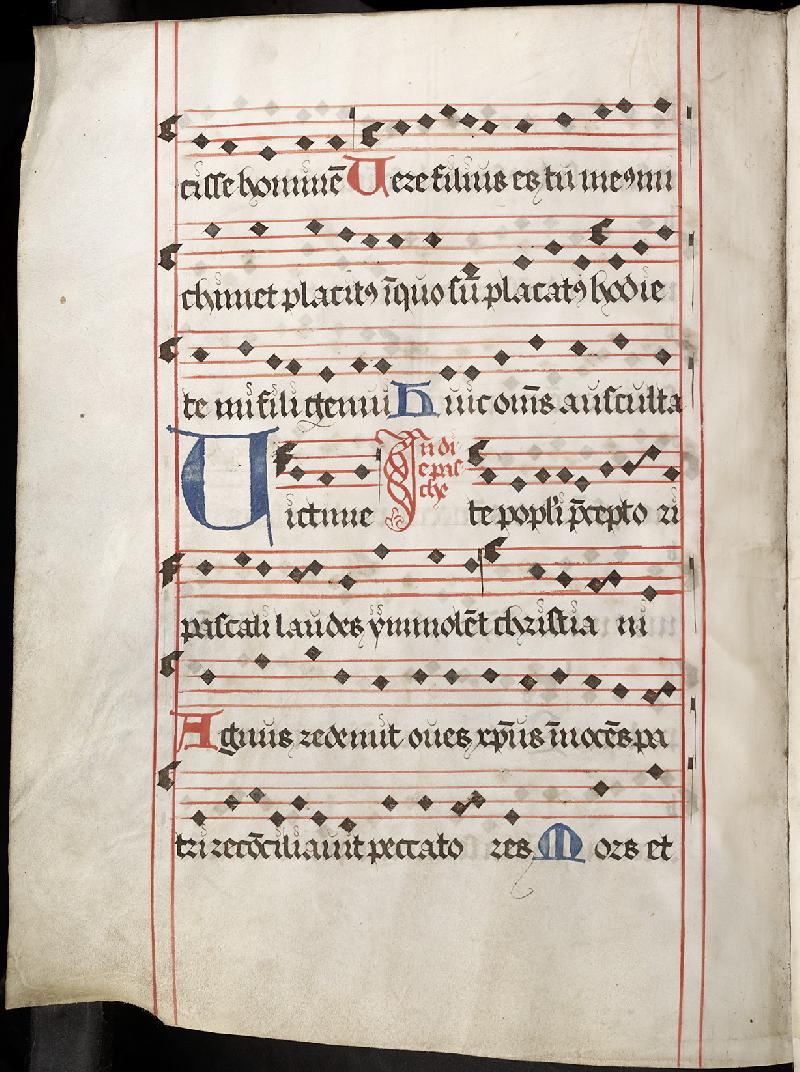 cisse hominē Vere filius es tu meꝰ mi
chimet placitꝰ ī quo sū placatꝰ hodie
te mi fili genui Huic om̄s ausculta
Victime In die pasche te popl'i p̄cepto ri
pascali laudes ymmolēt christia ni
Agnus redemit oues xp̄us īnocēs pa
tri recōciliauit peccato res Mors et